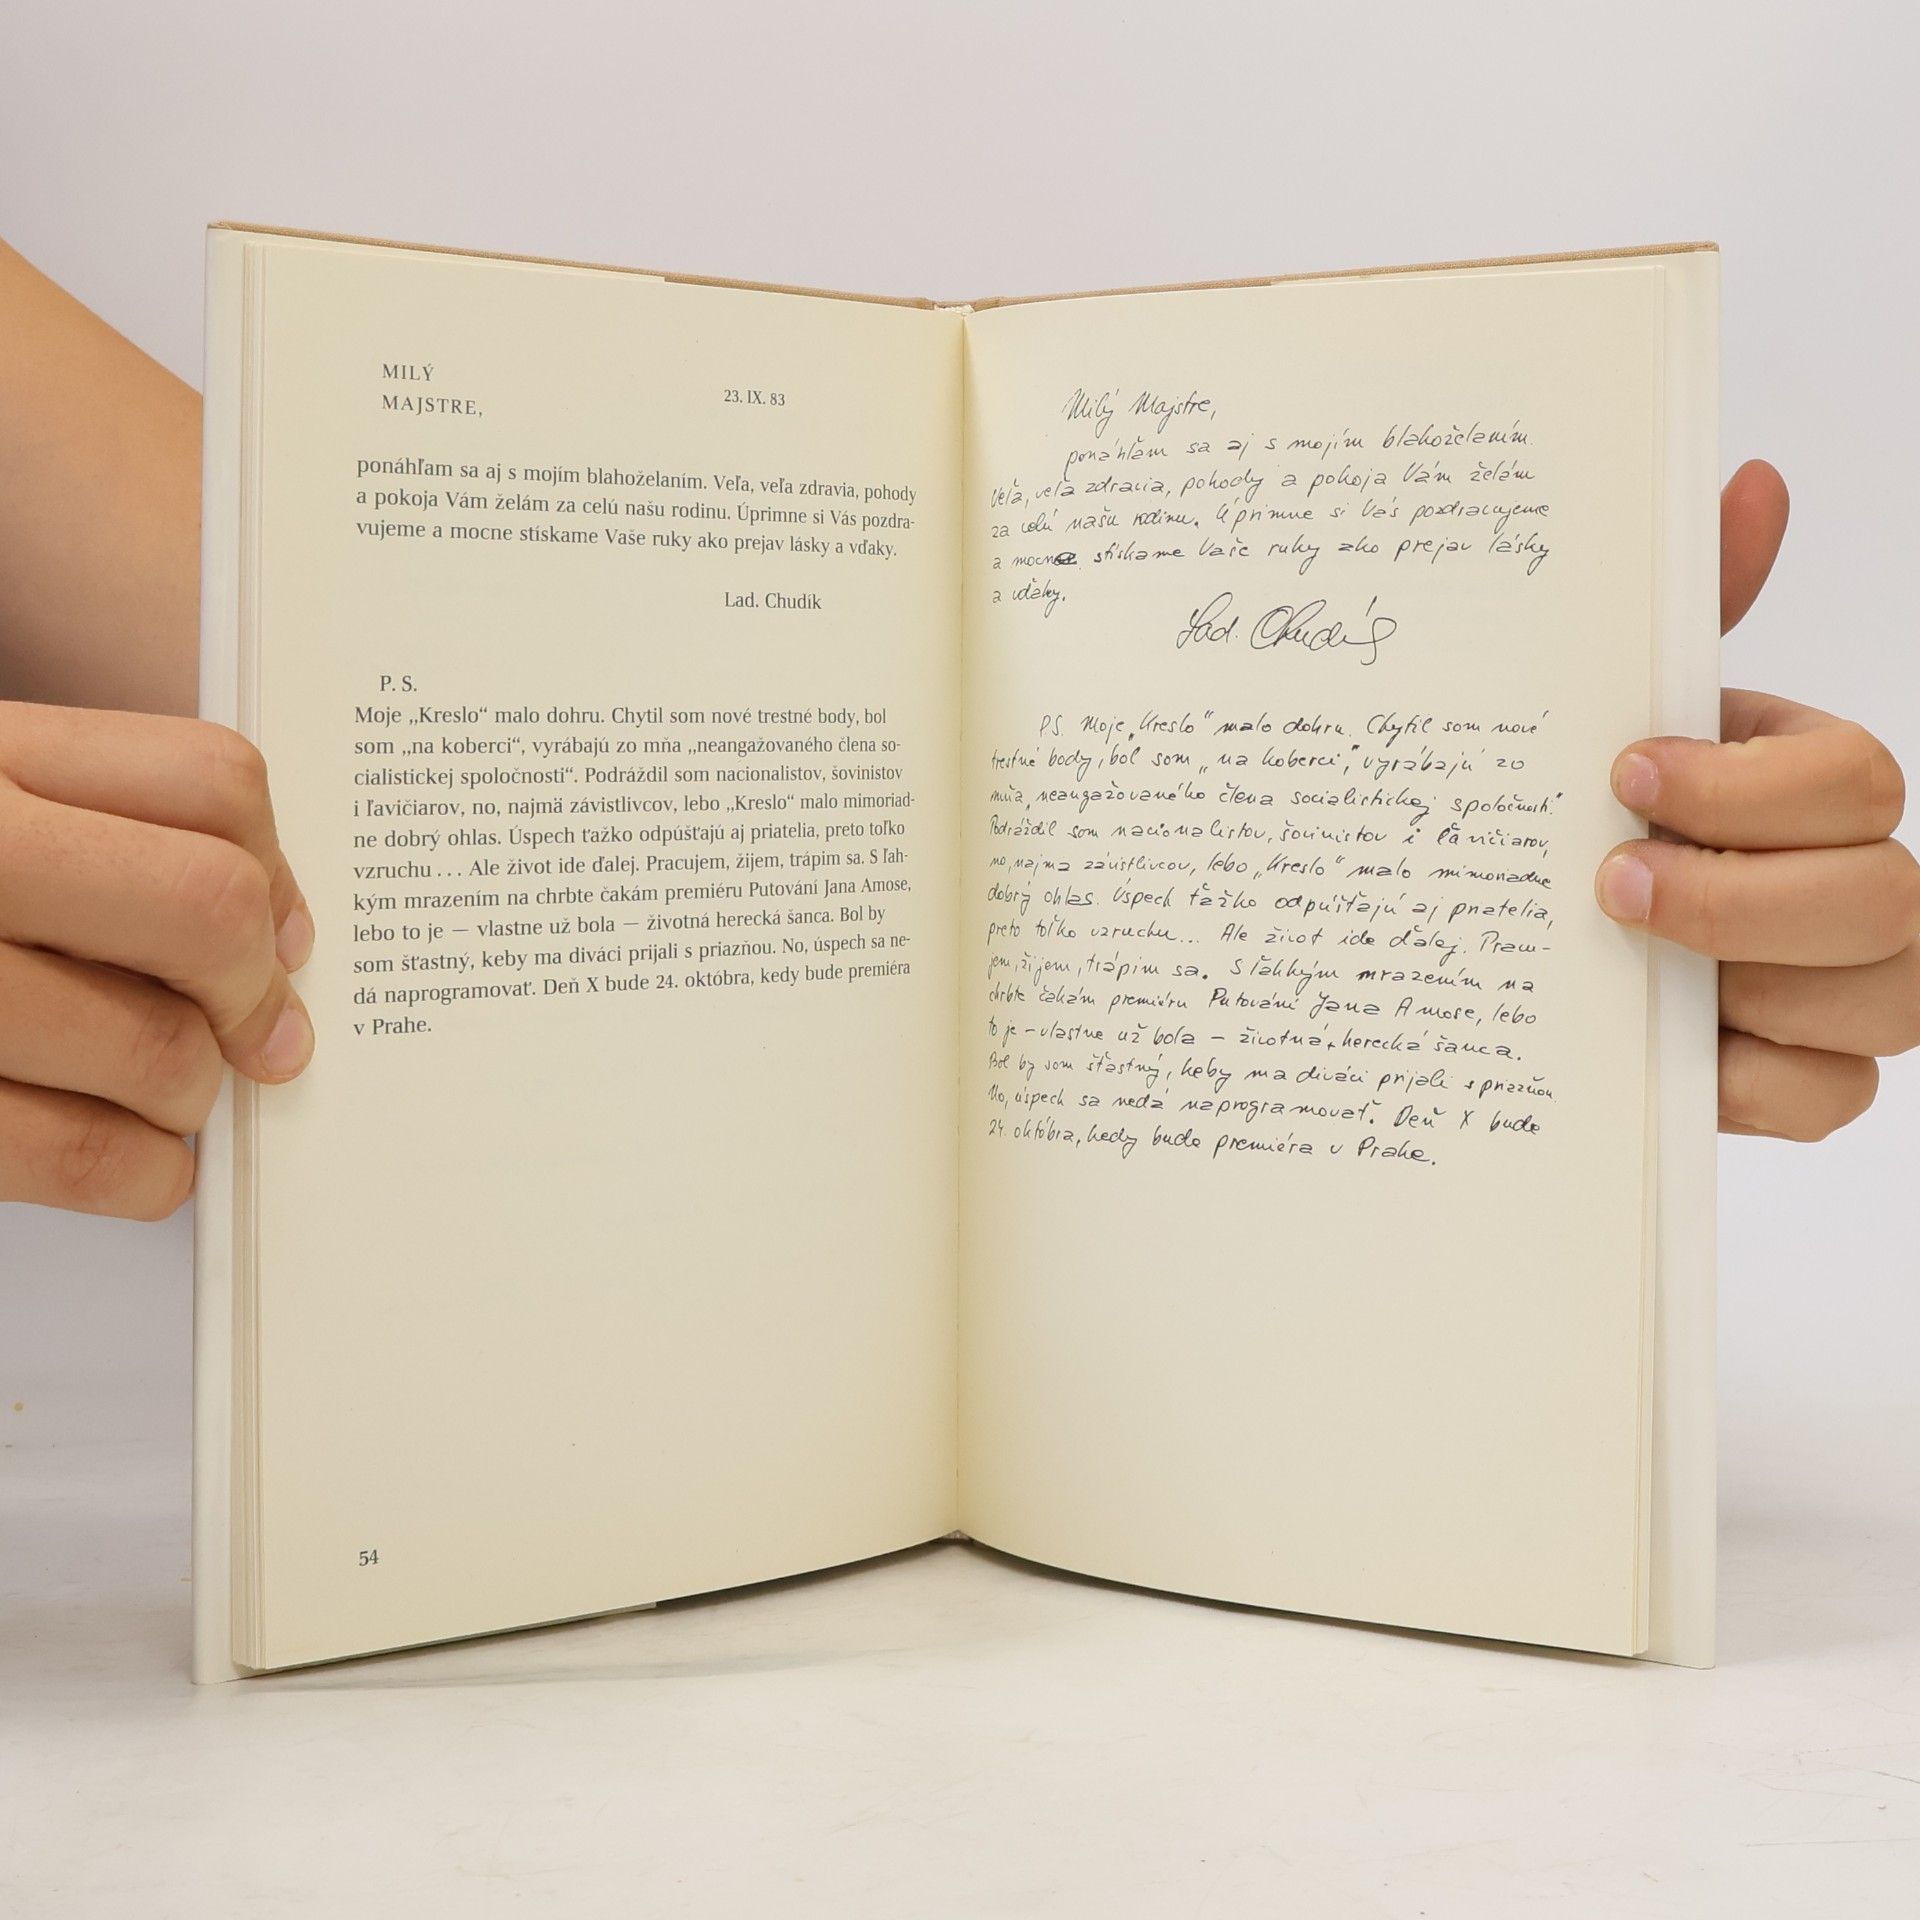 MILÝ
MAJSTRE,
23. IX. 83
ponáhľam sa aj s mojím blahoželaním. Veľa, veľa zdravia, pohody
a pokoja Vám želám za celú našu rodinu. Úprimne si Vás pozdra-
vujeme a mocne stískame Vaše ruky ako prejav lásky a vďaky.
Lad. Chudík
P. S.
Moje „Kreslo“ malo dohru. Chytil som nové trestné body, bol
som „na koberci“, vyrábajú zo mňa „neangažovaného člena so-
cialistickej spoločnosti“. Podráždil som nacionalistov, šovinistov
i ľavičiarov, no, najmä závistlivcov, lebo „Kreslo“ malo mimoriad-
ne dobrý ohlas. Úspech ťažko odpúšťajú aj priatelia, preto toľko
vzruchu . . . Ale život ide ďalej. Pracujem, žijem, trápim sa. S ľah-
kým mrazením na chrbte čakám premiéru Putování Jana Amose,
lebo to je — vlastne už bola — životná herecká šanca. Bol by
som šťastný, keby ma diváci prijali s priazňou. No, úspech sa ne-
dá naprogramovať. Deň X bude 24. októbra, kedy bude premiéra
v Prahe.
54
Milý Majstre,
ponáhľam sa aj s mojím blahoželaním.
Veľa, veľa zdravia, pohody a pokoja Vám želám
za celú našu rodinu. Úprimne si Vás pozdravujeme
a mocne stískame Vaše ruky ako prejav lásky
a vďaky.
Lad. Chudík
P.S. Moje „Kreslo“ malo dohru. Chytil som nové
trestné body, bol som „na koberci“, vyrábajú zo
mňa „neangažovaného člena socialistickej spoločnosti“.
Podráždil som nacionalistov, šovinistov i ľavičiarov,
no, najmä závistlivcov, lebo „Kreslo“ malo mimoriadne
dobrý ohlas. Úspech ťažko odpúšťajú aj priatelia,
preto toľko vzruchu... Ale život ide ďalej. Pracu-
jem, žijem, trápim sa. S ľahkým mrazením na
chrbte čakám premiéru Putování Jana Amose, lebo
to je – vlastne už bola – životná herecká šanca.
Bol by som šťastný, keby ma diváci prijali s priazňou.
No, úspech sa nedá naprogramovať. Deň X bude
24. októbra, kedy bude premiéra v Prahe.